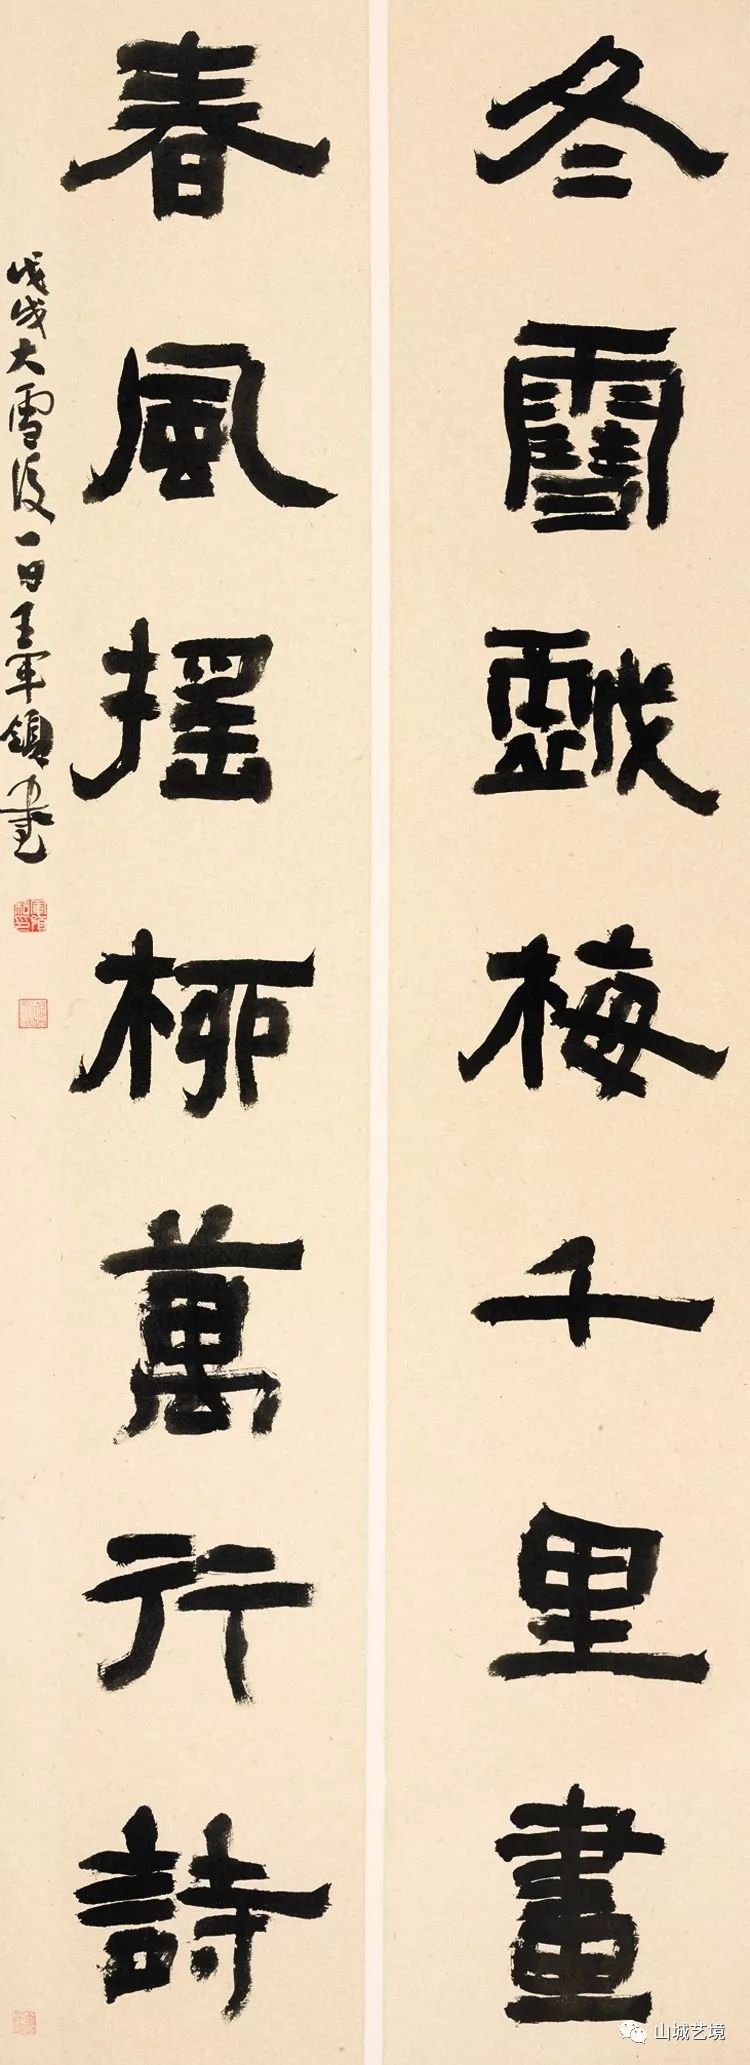 冬雪戲梅千里畫
春風搖柳萬行詩
戊戌大雪後一日王軍領書
山城艺境